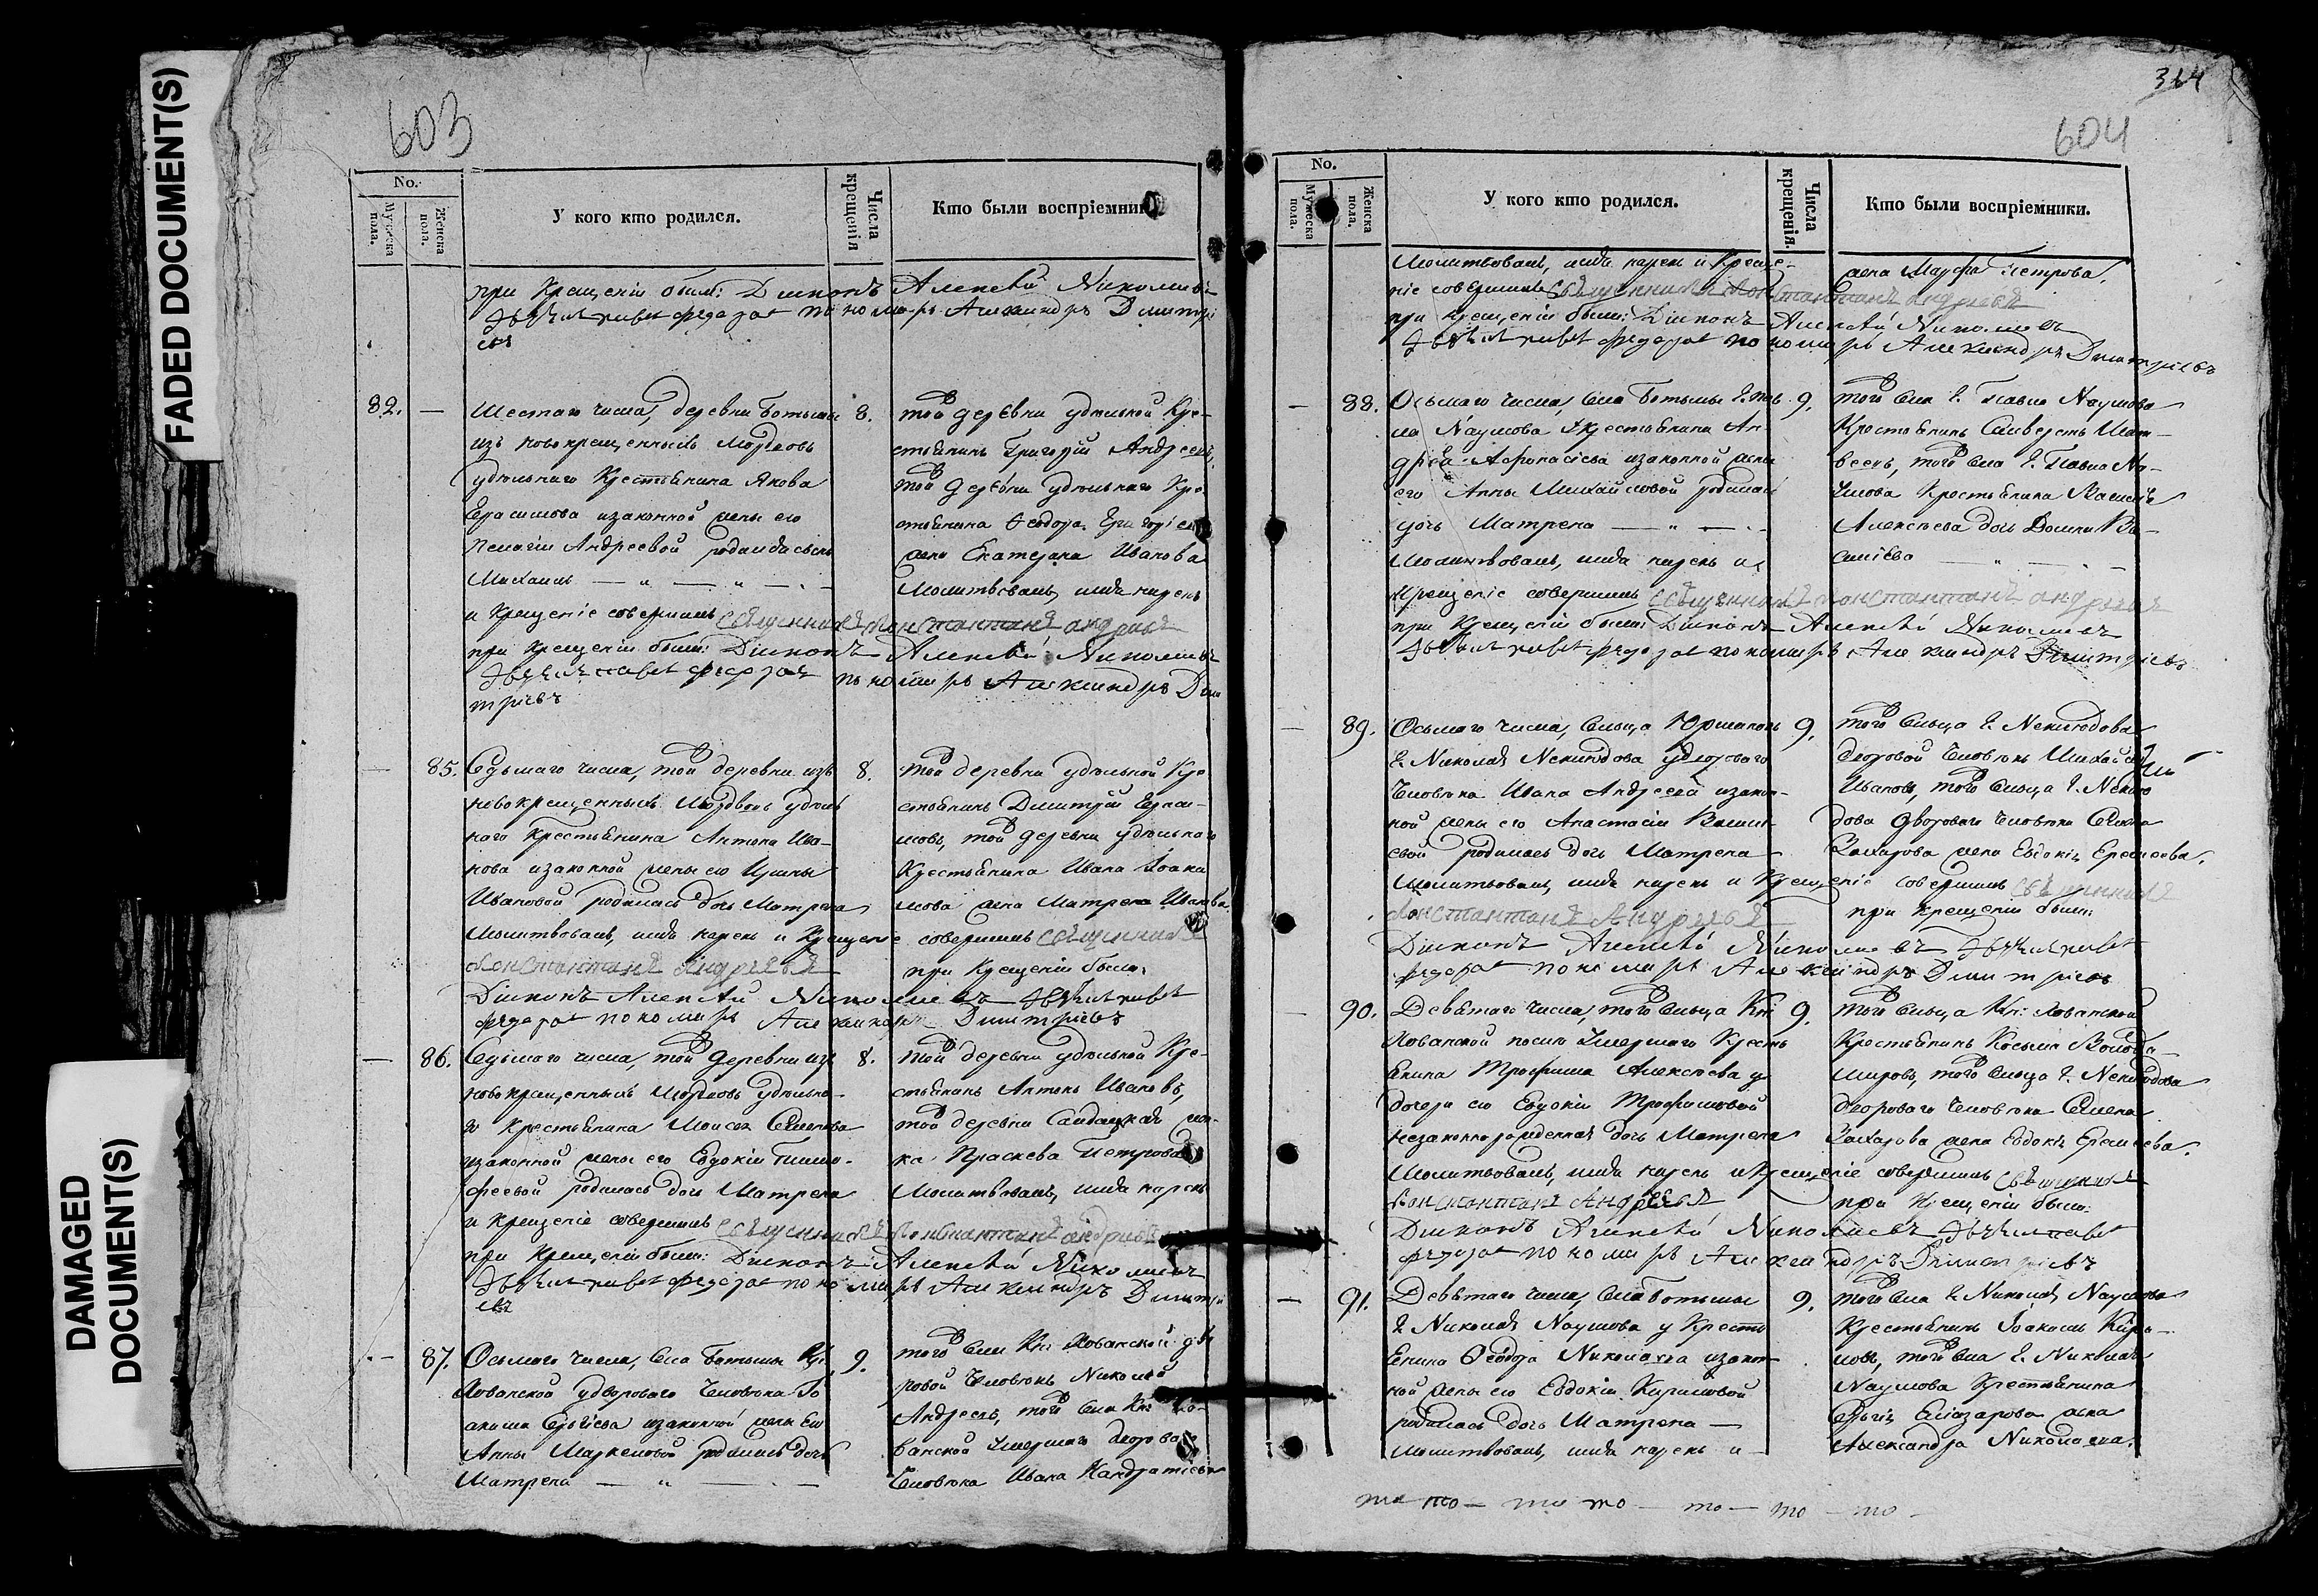 FADED DOCUMENT(S)
DAMAGED
DOCUMENT(S)
603
No.
Мужеска пола.
Женска пола.
У кого кто родился.
Числа крещенія
Кто были воспріемники
при Крещеніи были: Діаконъ Алексѣй Николаевъ
федоровъ пономарь Александръ Димитрі
евъ
82. — Шестаго числа, деревни Ботьмы 8.
изъ новокрещенныхъ Мордовъ
удѣльнаго Крестьянина Якова
Герасимова изаконной жены его
Пелагіи Андреевой родился сынъ
Михаилъ — „ — „ —
той деревни удѣльной Кре-
стьянинъ Григорій Андреевъ,
той деревни удѣльнаго Кре
стьянина Ѳеодора Григорьева
жена Екатерина Иванова
Молитвовалъ, имя нарекъ
и Крещеніе совершилъ священникъ Константинъ андреевъ
при Крещеніи были: Діаконъ Алексѣй Николаевъ
федоровъ пономарь Александръ Дими
тріевъ
— 85. Седьмаго числа, той деревни изъ 8.
новокрещенныхъ Мордовъ удѣль
наго Крестьянина Антона Ива-
нова изаконной жены его Ирины
Ивановой родилась дочь Матрена
той деревни удѣльной Кре
стьянинъ Димитрій Гераси-
мовъ, той деревни удѣльнаго
Крестьянина Ивана Іоаки
мова жена Матрена Иванова.
Молитвовалъ, имя нарекъ и Крещеніе совершилъ священникъ
Константинъ Андреевъ при Крещеніи были:
Діаконъ Алексѣй Николаевъ
федоровъ пономарь Александръ Димитріевъ
— 86. Седьмаго числа, той деревни изъ 8.
новокрещенныхъ Мордовъ удѣльна-
го Крестьянина Моисея Семенова
изаконной жены его Евдокіи Тимо-
феевой родилась дочь Матрена
той деревни удѣльной Кре-
стьянинъ Антонъ Ивановъ,
той деревни Салдацкая жон-
ка Праскева Петрова
Молитвовалъ, имя нарекъ
и Крещеніе совершилъ священникъ Константинъ андреевъ
при Крещеніи были: Діаконъ Алексѣй Николаевъ
федоровъ пономарь Александръ Димитрі
евъ
— 87. Осьмаго числа, села Ботьмы Кн: 9.
Хованской удвороваго Человѣка Іо
акима Сергіева изаконной жены его
Анны Маркеловой родилась дочь
Матрена — „ — —
того села Кн: Хованской дво
ровой Человѣкъ Николай
Андреевъ, того села Кн: Хо-
ванской умершаго двороваго
Человѣка Ивана Кандратіева
604
No.
Мужеска пола.
Женска пола.
У кого кто родился.
Числа крещенія.
Кто были воспріемники.
Молитвовалъ, имя нарекъ и Креще-
жена Марфа Петрова,
ніе совершилъ священникъ Константинъ андреевъ
при Крещеніи были: Діаконъ Алексѣй Николаевъ
федоровъ пономарь Александръ Димитріевъ
— 88. Осьмаго числа, села Ботьмы Г. Пав 9.
ла Наумова Крестьянина Ан-
дрея Афонасіева изаконной жены
его Анны Михайловой родилась
дочь Матрена — „ — —
того села Г. Павла Наумова
Крестьянинъ Селиверстъ Мат-
веевъ, того села Г. Павла На-
умова Крестьянина Василія
Алексѣева дочь Домна Ва-
силіева —
Молитвовалъ, имя нарекъ и
Крещеніе совершилъ священникъ Константинъ андреевъ
при Крещеніи были: Діаконъ Алексѣй Николаевъ
федоровъ пономарь Александръ Димитріевъ
— 89. Осьмаго числа, сельца Юрманокъ 9.
Г. Николая Неклюдова удвороваго
Человѣка Ивана Андреева изакон-
ной жены его Анастасіи Василь
евой родилась дочь Матрена
того сельца Г. Неклюдова
дворовой Человѣкъ Михайла
Ивановъ, того сельца Г. Неклю
дова двороваго Человѣка Семена
Захарова жена Евдокія Еремеева.
Молитвовалъ, имя нарекъ и Крещеніе совершилъ священникъ
Константинъ Андреевъ при Крещеніи были:
Діаконъ Алексѣй Николаевъ
федоровъ пономарь Александръ Димитріевъ
— 90. Девятаго числа, того сельца Кн: 9.
Хованской послѣ умершаго Кресть
янина Трофима Алексѣева у
дочери его Евдокіи Трофимовой
незаконнорожденная дочь Матрена
того сельца Кн: Хованской
Крестьянинъ Косьма Володи-
мировъ, того сельца Г. Неклюдова
двороваго Человѣка Семена
Захарова жена Евдокія Еремеева.
Молитвовалъ, имя нарекъ и Крещеніе совершилъ священникъ
Константинъ Андреевъ при Крещеніи были:
Діаконъ Алексѣй Николаевъ
федоровъ пономарь Александръ Димитріевъ
— 91. Девятаго числа, села Ботьмы 9.
Г. Николая Наумова у Кресть
янина Ѳеодора Николаева изакон
ной жены его Евдокіи Кириловой
родилась дочь Матрена —
Молитвовалъ, имя нарекъ и —
того села Г. Николая Наумова
Крестьянинъ Іоакимъ Кири-
ловъ, того села Г. Николая
Наумова Крестьянина
Сергія Елиазарова жена
Александра Николаева.
то то — то то — то — то — то —